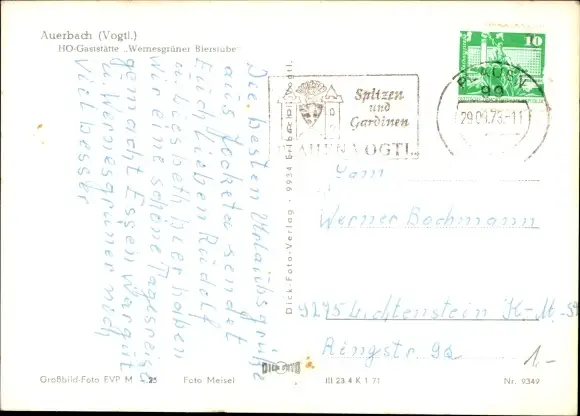 Auerbach (Vogtl.)
HO-Gaststätte „Wernesgrüner Bierstube"
Die besten Urlaubsgrüße
aus Jocketa sendet
Euch lieben Rudolf
u. Liesbeth hier haben
wir eine schöne Tagesreise
gemacht Essen war gut
u. Wernesgrüner noch
viel besser
Dick-Foto-Verlag · 9934 Erlbach i. Vogtl.
Spitzen
und
Gardinen
PLAUEN VOGTL.
10
PLAUEN
99
-11
Fam
Werner Bachmann
9275 Lichtenstein K-M-St
Ringstr. 9a
1,-
Großbild-Foto EVP M -,25
Foto Meisel
DICK
III 23 4 K 1 71
Nr. 9349